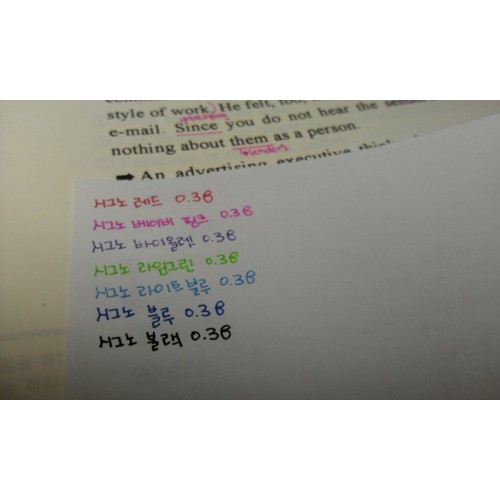 style of work. He felt, too,
e-mail. Since you do not hear the
nothing about them as a person.
➡ An advertising executive
시그노 레드 0.38
시그노 베이비 핑크 0.38
시그노 바이올렛 0.38
시그노 라임그린 0.38
시그노 라이트블루 0.38
시그노 블루 0.38
시그노 블랙 0.38